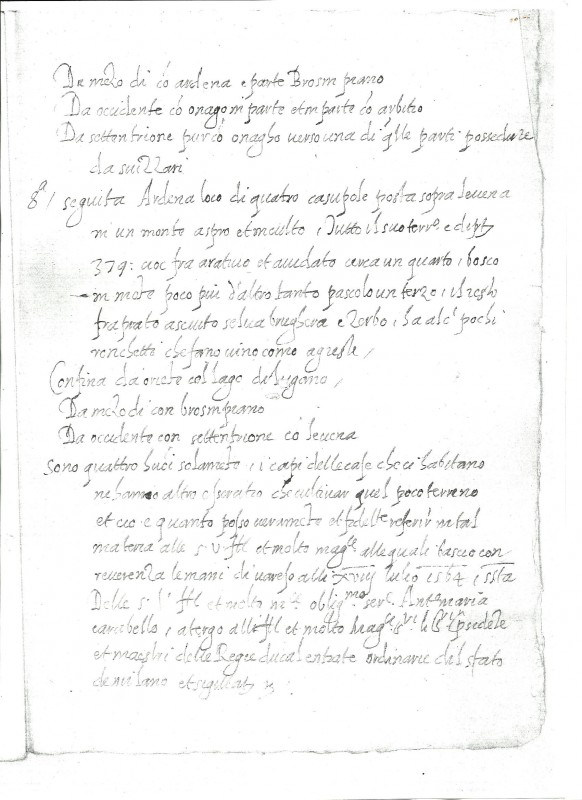 Da mezo di cõ ardena e parte Brosimpiano
Da occidente cõ onago in parte et in parte cõ arbitio
Da settentrione pur cõ onagho verso una di qlle parti possedute
da suizzari
8ª / seguita Ardena loco di quatro casupole posta sopra levena
in un monte aspro et inculto, Tutto il suo terrº e di ptz
379: cioe fra arativo et avidato cerca un quarto, bosco
in mezo poco piu d'altro tanto pascolo un terzo, il resto
fra prato asciuto selva brughera e zerbo, ha alc' pochi
ronchetti che fano vino como agreste /
Confina da oriete col lago di lugano /
Da mezo di con brosimpiano
Da occidente con settentrione cõ levena
Sono quattro fuochi solamete, i capi delle case che ci habitano
ne hanno altro che cultivar quel poco terreno
et cio e quanto posso veramete et fedelte referir in tal
materia alle s. v. Ill et molto magce alle quali bascio con
reverenza le mani di varese alli xviij lulio 1564, ssta
Delle s. v. Ill et molto mce obligmo serre Antº maria
carabello, a tergo alli Ill et molto Magci sri li sri
et maestri delle Regie ducal entrate ordinarie dil stato
de milano et sigillatz